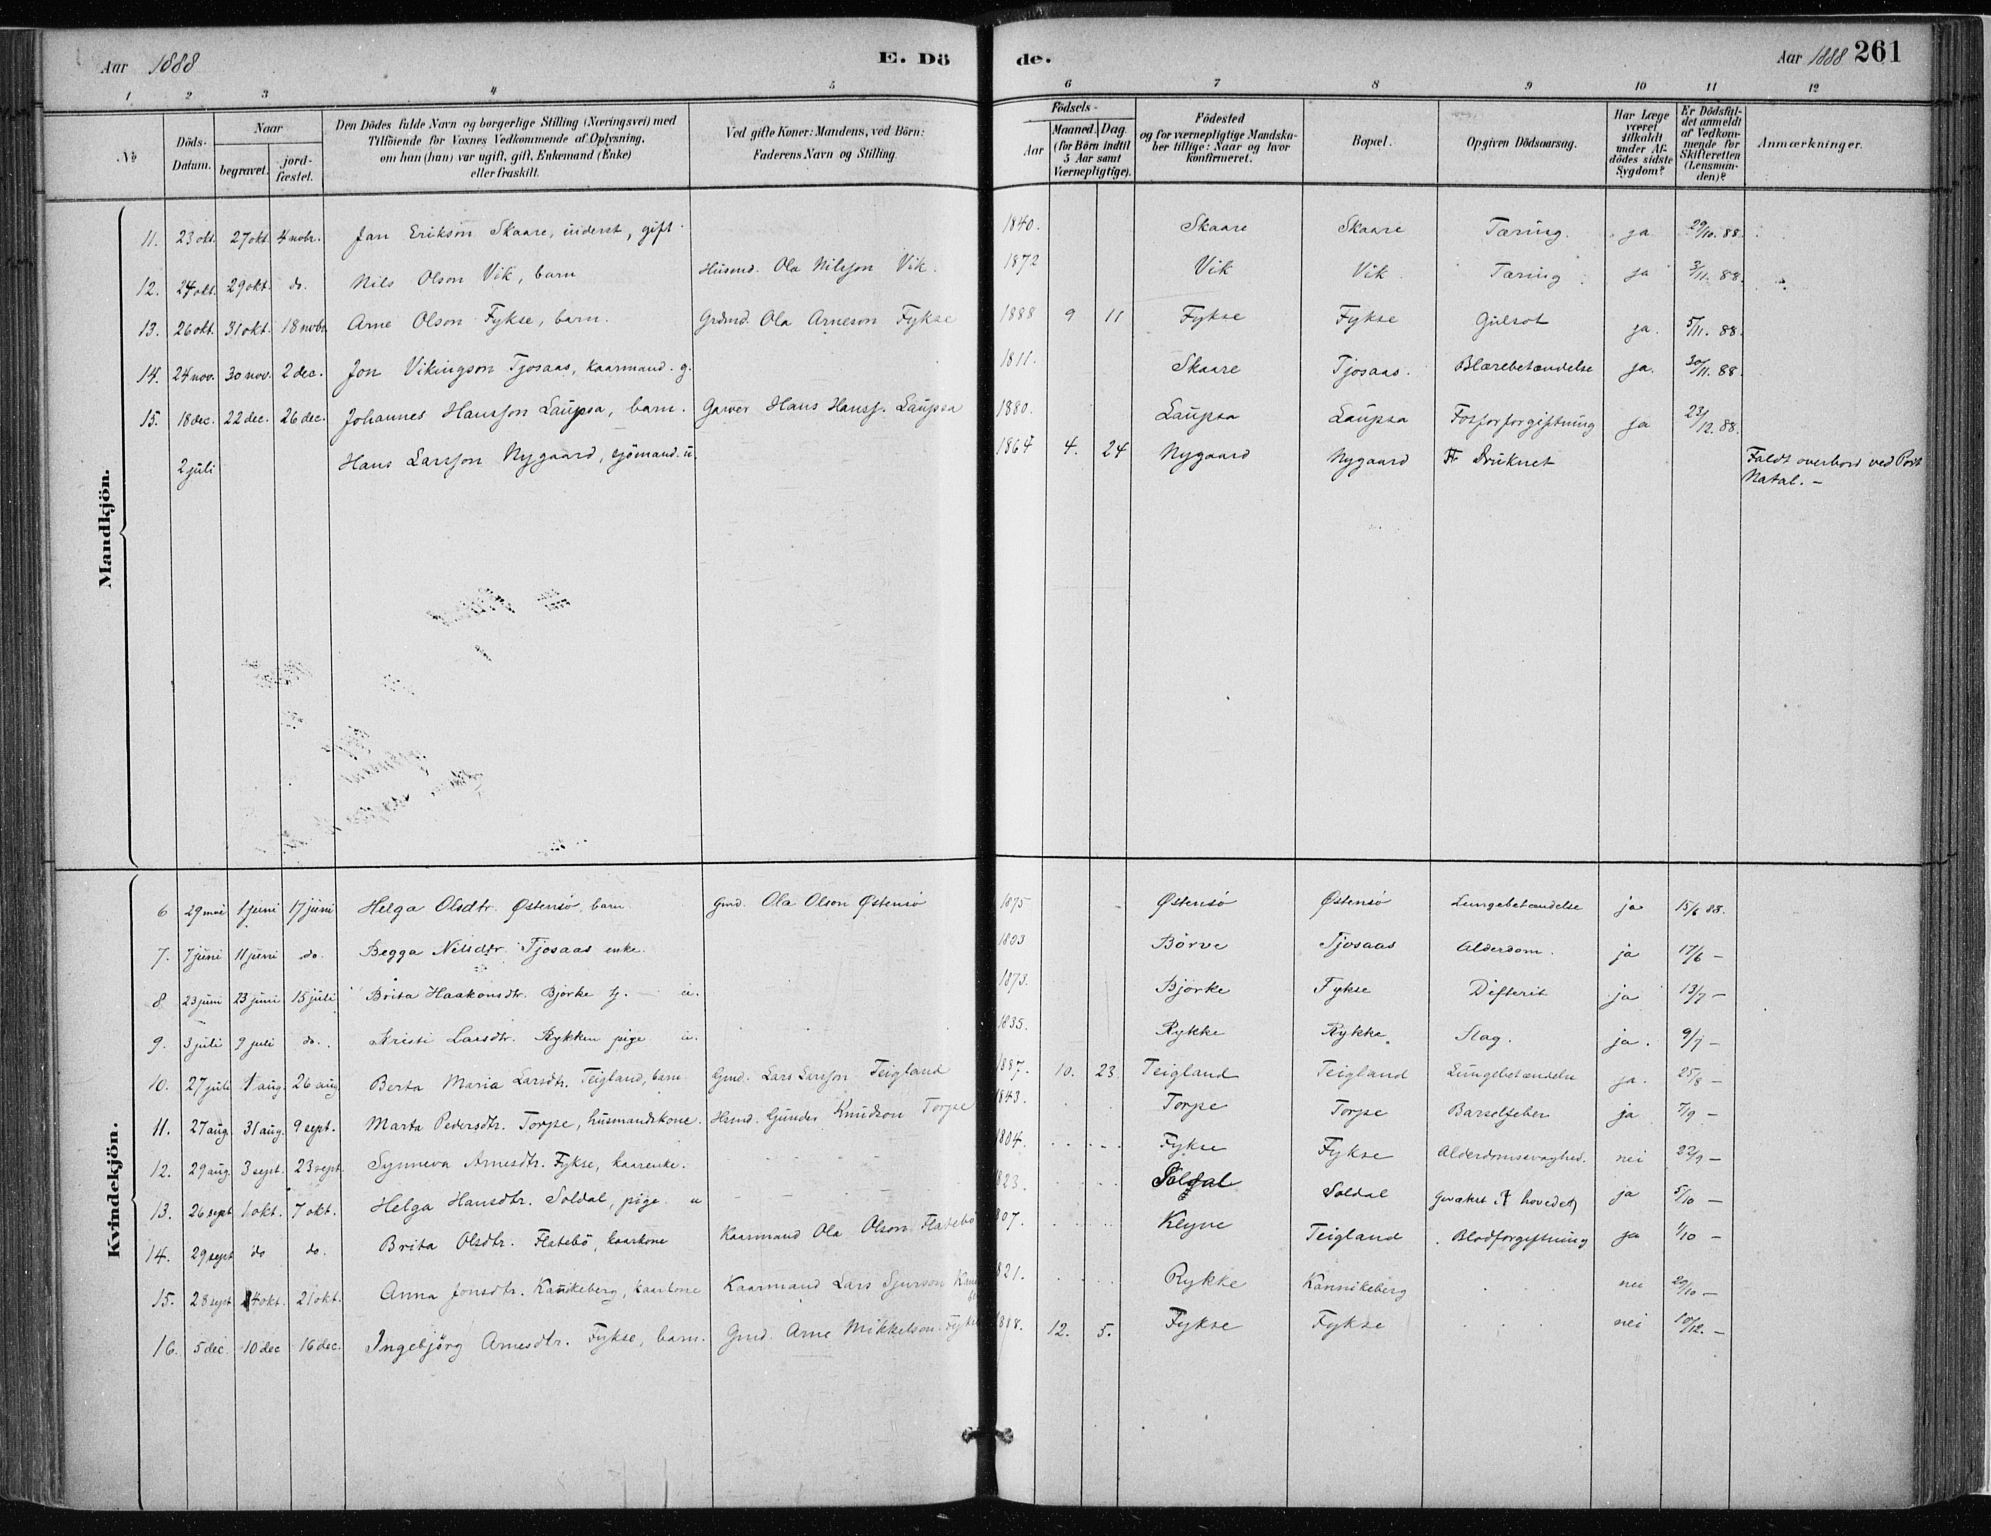 Aar 1888 E. Dö de. Aar 1888 261
1 2 3 4 5 6 7 8 9 10 11 12
No
Döds-Datum.
Naar
begravet. jord-fæstet.
Den Dödes fulde Navn og borgerlige Stilling (Næringsvei) med
Tilföiende for Voxnes Vedkommende af Oplysning,
om han (hun) var ugift, gift, Enkemand (Enke)
eller fraskilt.
Ved gifte Koner: Mandens, ved Börn:
Faderens Navn og Stilling.
Födsels-
Aar Maaned. Dag
(for Börn indtil
5 Aar samt
Værnepligtige).
Födested
og for værnepligtige Mandska-
ber tillige: Naar og hvor
konfirmeret.
Bopæl.
Opgiven Dödsaarsag.
Har Læge
været
tilkaldt
under Af-
dödes sidste
Sygdom?
Er Dödsfal-
det anmeldt
af Vedkom-
mende for
Skifteretten
(Lensman-
den)?
Anmærkninger.
Mandkjön.
11. 23 okt. 27 okt. 4 novbr. Jan Erikson Skaare, inderst, gift. 1840. Skaare Skaare Tæring. ja 29/10. 88.
12. 24 okt. 29 okt. do. Nils Olson Vik, barn Husmd. Ola Nilsson Vik. 1872 Vik Vik. Tæring ja 3/11. 88.
13. 26 okt. 31 okt. 18 novbr. Arne Olson Fykse, barn. Grdmd. Ola Arneson Fykse 1888 9 11 Fykse Fykse Gulsot ja. 5/11. 88.
14. 24 nov. 30 nov. 2 dec. Jon Vikingson Tjosaas, kaarmand. g. 1811. Skaare Tjosaas. Blærebetændelse ja. 30/11. 88.
15. 18 dec. 22 dec. 26 dec. Johannes Hansson Laupsa, barn. Garver Hans Hanss. Laupsa 1880. Laupsa Laupsa Fosforforgiftning ja 23/12. 88.
2 juli Hans Larsson Nygaard, sjömand. u. 1864 4. 24 Nygaard Nygaard Druknet Faldt overbord ved Port
Natal. –
Kvindekjön.
6 29 mai 1 juni 17 juni Helga Olsdtr. Østensö, barn Gmd. Ola Olson Østensö 1875 Østensö Østensö Lungebetændelse ja 15/6 88.
7. 7 juni 11 juni do. Begga Nilsdtr. Tjosaas enke. 1803 Börve Tjosaas Alderdom. ja 17/6 –
8 23 juni 23 juni 15 juli Brita Haakonsdtr. Bjorke tj. – u. 1873. Bjorke Fykse Difterit ja 13/7 –
9. 3 juli 9 juli do. Kristi Larsdtr. Rykken pige u. 1835. Rykke Rykke Slag. ja. 9/7 –
10. 27 juli 1 aug. 26 aug. Berta Maria Larsdtr. Teigland, barn Gmd. Lars Larsson Teigland 1887. 10. 23 Teigland Teigland Lungebetændelse ja. 25/8 –
11. 27 aug. 31 aug. 9 sept. Marta Pedersdtr. Torpe, husmandskone. Hsmd. Gunder Knudson Torpe 1843. Torpe Torpe Barselfeber ja 7/9 –
12. 29 aug. 3 sept. 23 sept. Synneva Arnesdtr. Fykse, kaarenke. 1804. Fykse Fykse Alderdomssvaghed. nei 22/9 –
13. 26 sept 1 okt. 7 okt. Helga Hansdtr. Soldal, pige. u 823. Soldal Soldal Gvækst (i hovedet) ja 5/10 –
14. 29 sept do do. Brita Olsdtr. Flatebö, kaarkone Kaarmand Ola Olson Flatebö 807. Klyve Teigland Blodforgiftning ja 1/10 –
15. 28 sept 4 okt. 21 okt. Anna Jonsdtr. Kannikeberg, kaarkone Kaarmand Lars Sjurson 821. Rykke Kannikeberg nei 29/10 –
16. 5 dec. 10 dec 16 dec. Ingebjörg Arnesdtr. Fykse, barn. Gmd. Arne Mikkelson Fykse 1818. 12. 5. Fykse Fykse nei 10/12. –